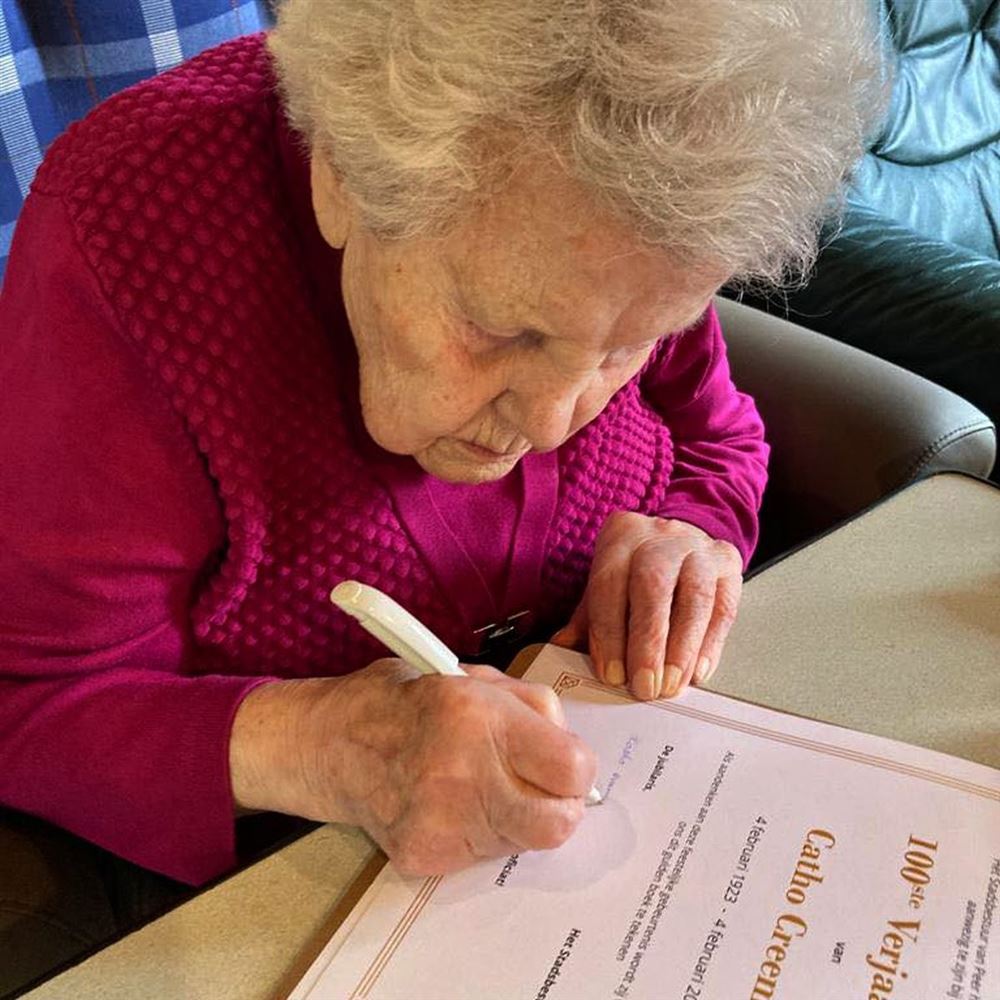 Het Stadsbestuur van Peer
aanwezig te zijn bij
100ste Verja
van
Catho Creem
4 februari 1923 - 4 februari 20
Als aandenken aan deze feestelijke gebeurtenis wordt zij
ons dit gulden boek te tekenen
De jubilaris,
Het Stadsbes
oficiat!